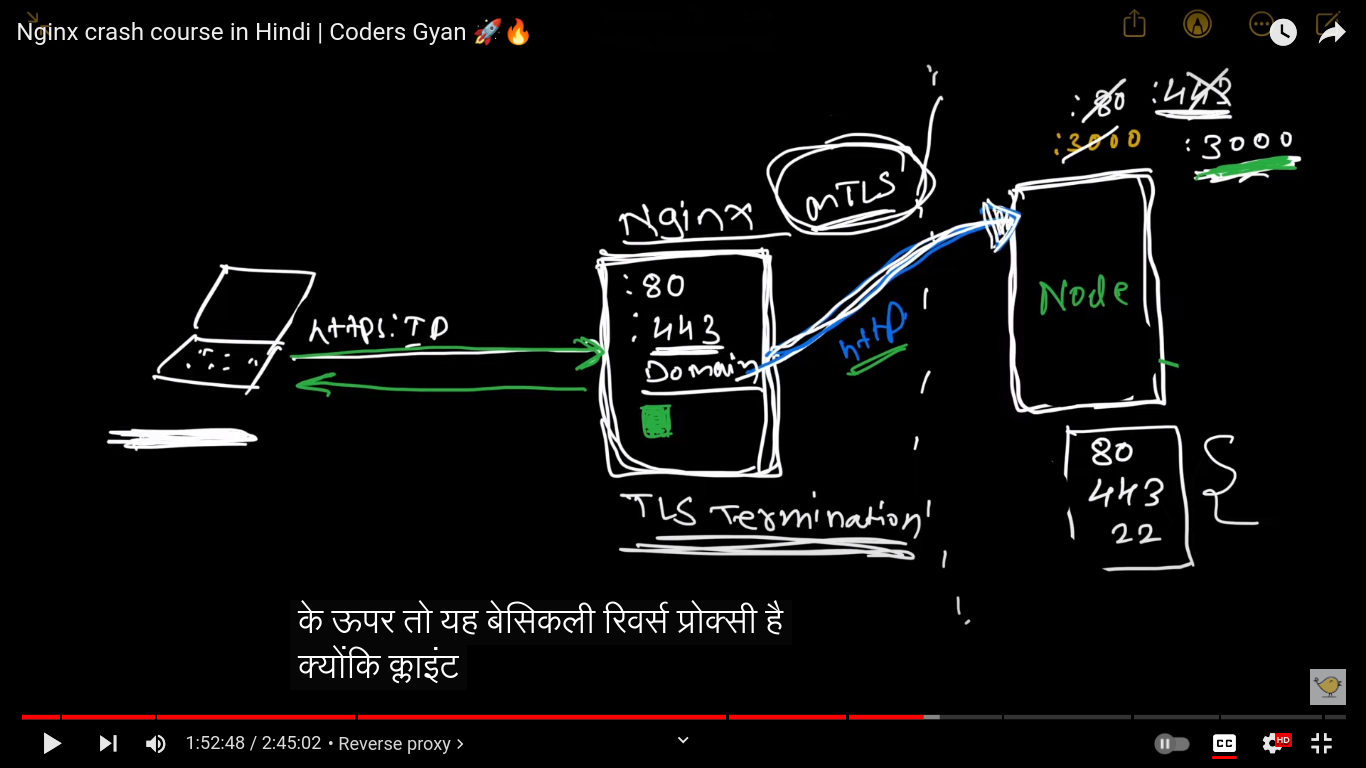 Nginx crash course in Hindi | Coders Gyan 🚀🔥
:80 :443
:3000 :3000
mTLS
Nginx
:80
:443
Domain
https: TD
http
Node
80
443
22
TLS Termination
के ऊपर तो यह बेसिकली रिवर्स प्रोक्सी है
क्योंकि क्लाइंट
1:52:48 / 2:45:02 • Reverse proxy >
CC
HD